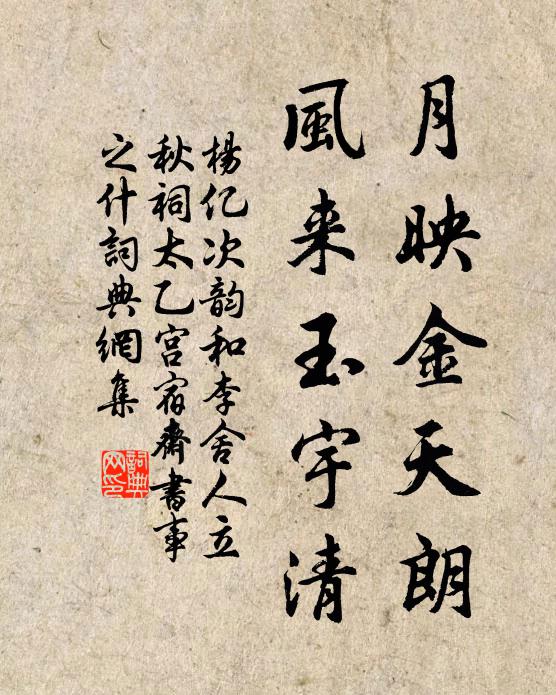 月映金天朗
風来玉宇清
楊亿次韵和李舍人立
秋祠太乙宫宿齋書事
之什詞典網集
詞典
网印